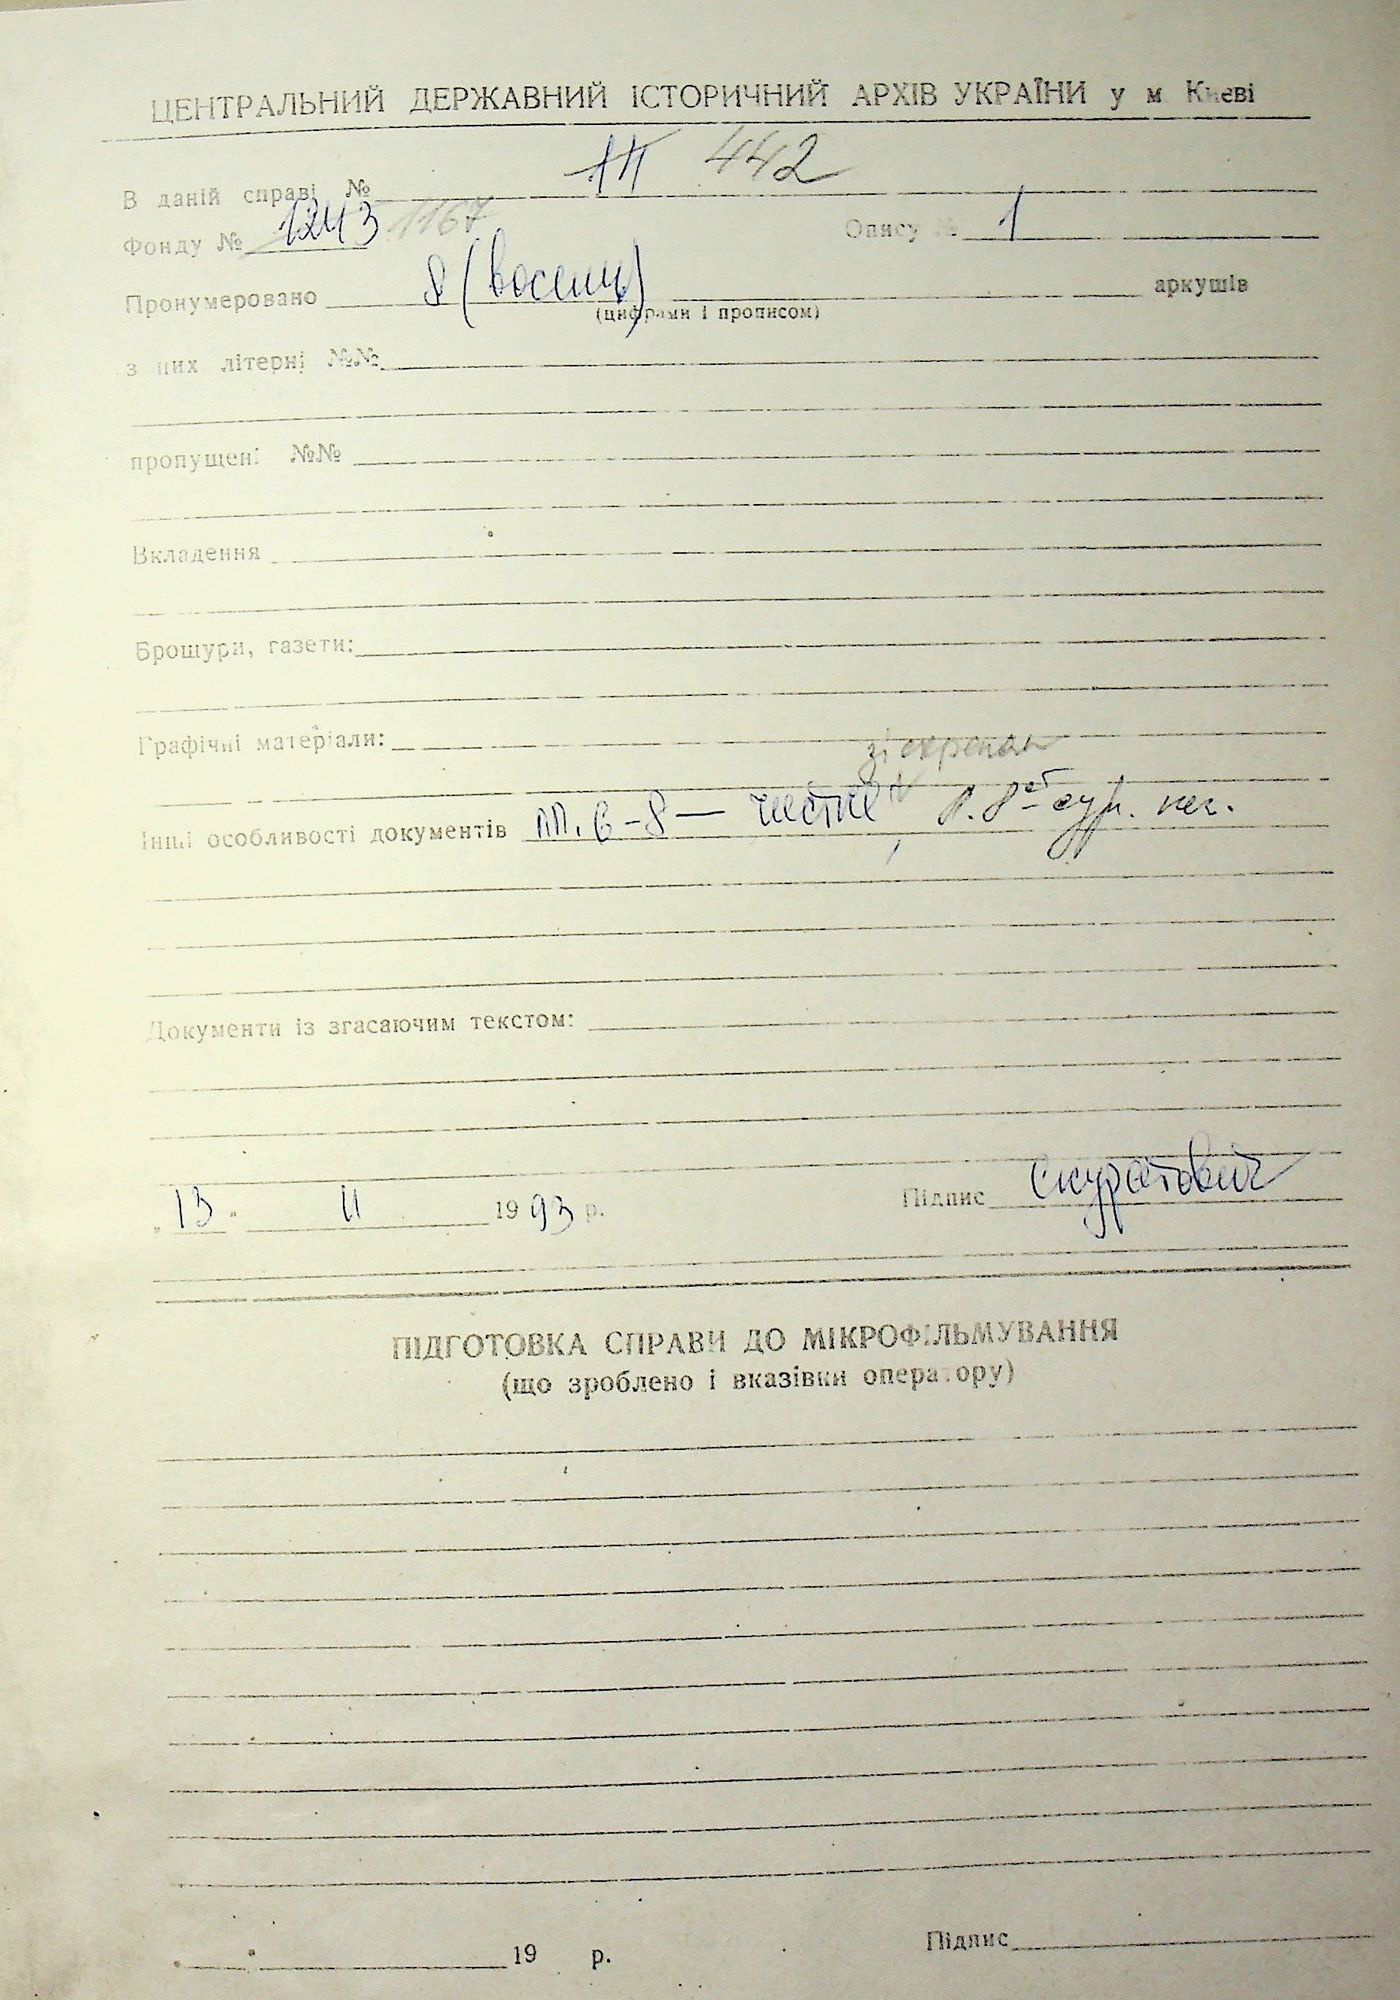 ЦЕНТРАЛЬНИЙ ДЕРЖАВНИЙ ІСТОРИЧНИЙ АРХІВ УКРАЇНИ у м Києві
В даній справі № 11 442
Фонду № 1243 1167 Опису № 1
Пронумеровано 8 (восемь) аркушів
(цифрами і прописом)
з них літерні №№
пропущені №№
Вкладення
Брошури, газети:
Графічні матеріали:
Інші особливості документів лл. 6-8 — чистые, л. 8
Документи із згасаючим текстом:
„13" 11 1993 р. Підпис Скуратович
ПІДГОТОВКА СПРАВИ ДО МІКРОФІЛЬМУВАННЯ
(що зроблено і вказівки оператору)
19 р. Підпис